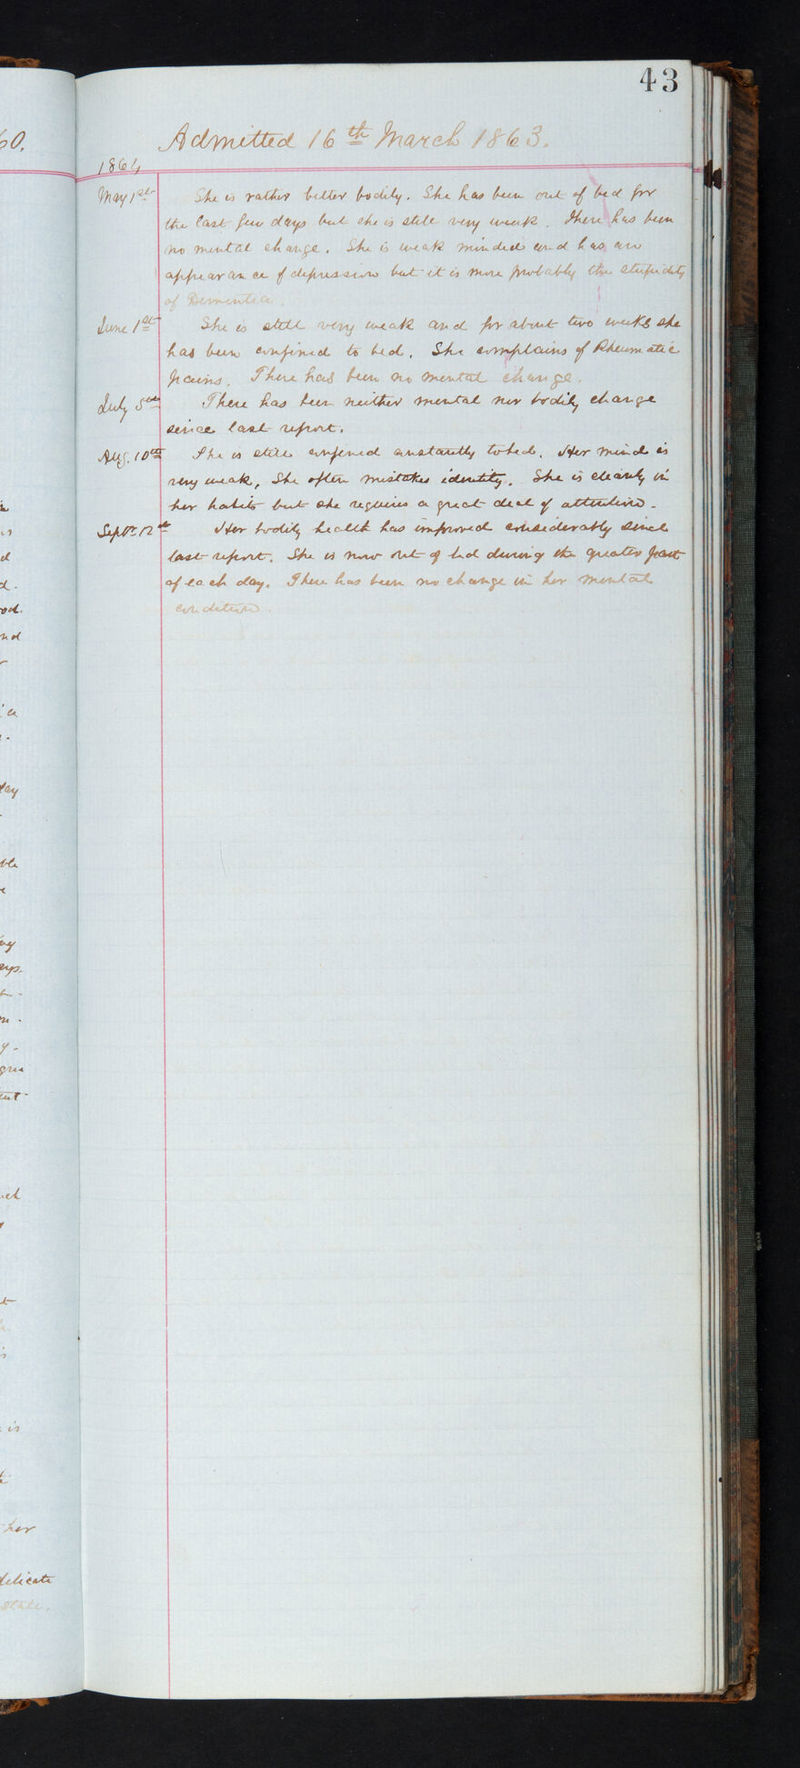 43
Admitted 16th March 1863.
1864
May 1st She is rather better bodily. She has been out of bed for
the last few days but she is still very weak. There has been
no mental change. She is weak minded and has an
appearance of depression but it is more probably the stupidity
of Dementia.
June 1st She is still very weak and for about two weeks she
has been confined to bed. She complains of Rheumatic
pains. There has been no mental change.
July 5th There has been neither mental nor bodily change
since last report.
Aug. 10th She is still confined constantly to bed. Her mind is
very weak, She often mistakes identity. She is cleanly in
her habits but she requires a great deal of attention.
Septr 12th Her bodily health has improved considerably since
last report. She is now out of bed during the greater part
of each day. There has been no change in her mental
condition.
60.
her
delicate
state.